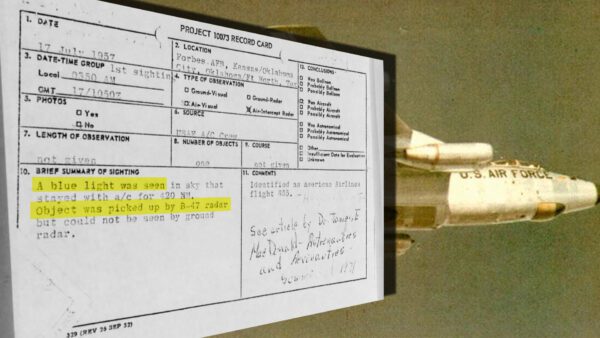 PROJECT 10073 RECORD CARD
1. DATE
17 July 1957
2. LOCATION
Forbes AFB, Kansas/Oklahoma
City, Oklahoma/Ft Worth, Tex
3. DATE-TIME GROUP 1st sighting
Local 0350 AM
GMT 17/1050Z
4. TYPE OF OBSERVATION
Ground-Visual
Ground-Radar
Air-Visual
Air-Intercept Radar
5. PHOTOS
Yes
No
6. SOURCE
A/C Crew
7. LENGTH OF OBSERVATION
not given
8. NUMBER OF OBJECTS
one
9. COURSE
not given
10. BRIEF SUMMARY OF SIGHTING
A blue light was seen in sky that
stayed with a/c for 420 NM.
Object was picked up by B-47 radar
but could not be seen by ground
radar.
11. COMMENTS
Identified as american Airlines
flight 655.
See article by Dr. James E
MacDonald - Astronautics
and Aeronautics -
1971
12. CONCLUSIONS
Was Balloon
Probably Balloon
Possibly Balloon
Was Aircraft
Probably Aircraft
Possibly Aircraft
Was Astronomical
Probably Astronomical
Possibly Astronomical
Other
Insufficient Data for Evaluation
Unknown
329 (REV 26 SEP 52)
U.S. AIR FORCE